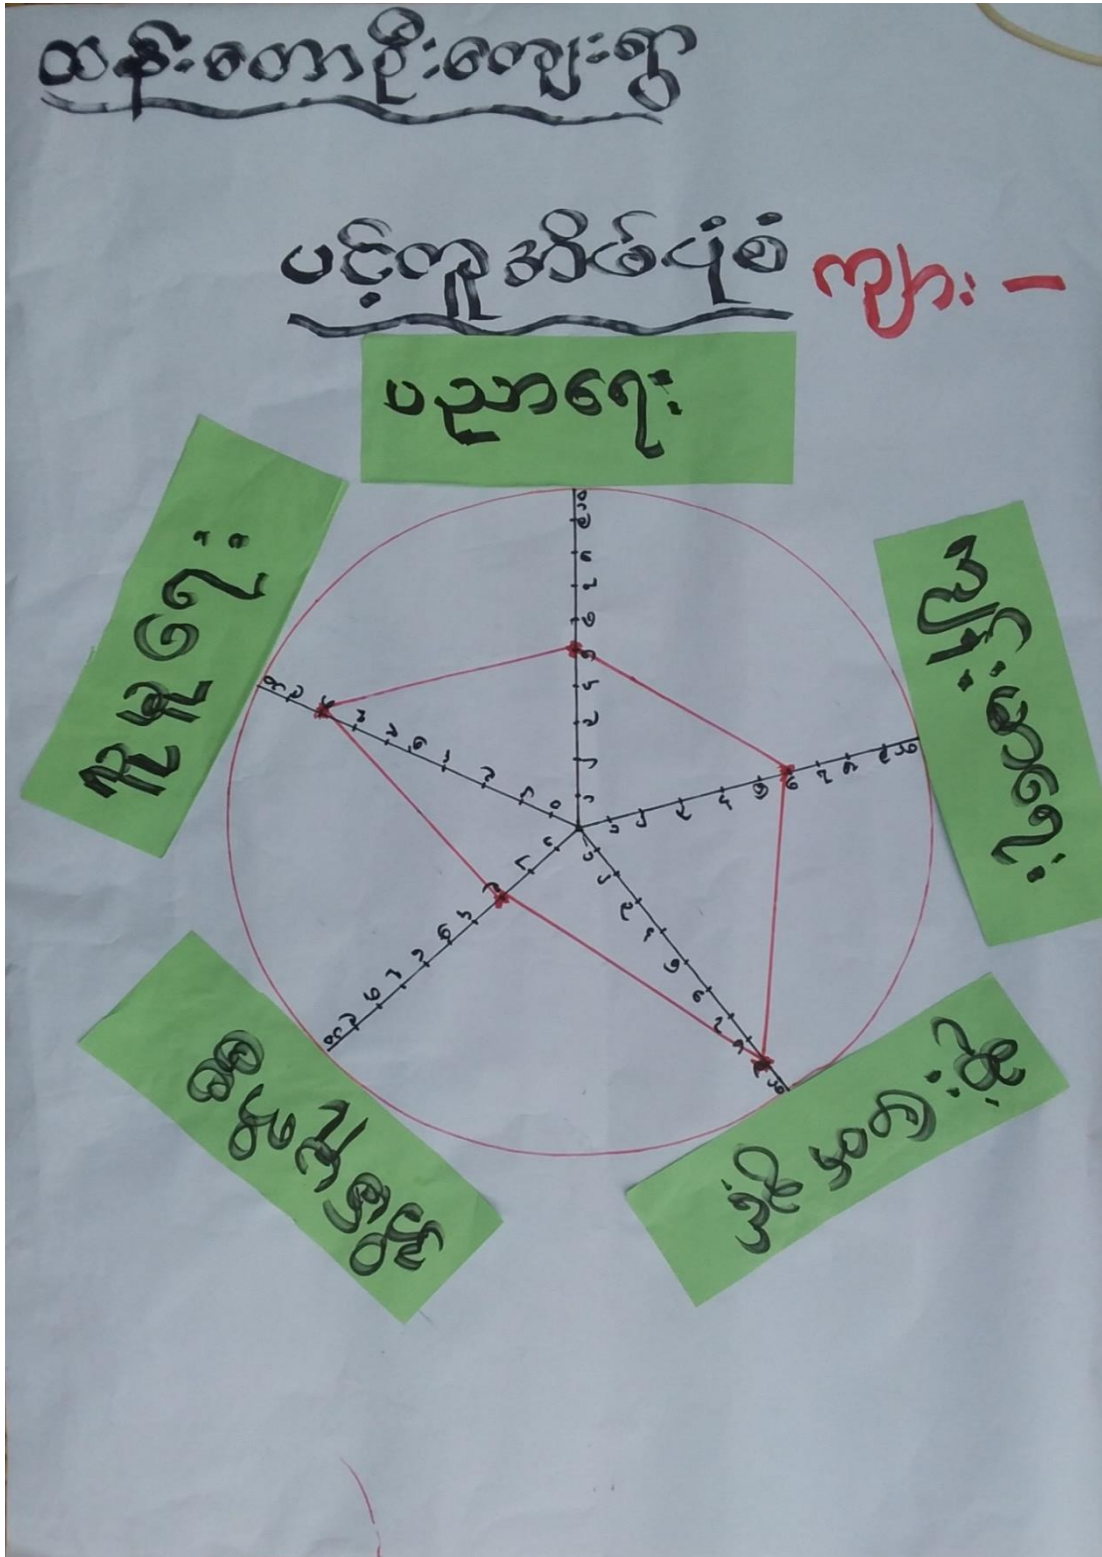 ထန်းတောဦးကျေးရွာ
ပင့်ကူအိမ်ပုံစံ ကျား -
ပညာရေး
ကျန်းမာရေး
လူမှုရေး
၁ ၂ ၃ ၄ ၅ ၆ ၇ ၈ ၉ ၁၀
၁ ၂ ၃ ၄ ၅ ၆ ၇ ၈ ၉ ၁၀
၁ ၂ ၃ ၄ ၅ ၆ ၇ ၈ ၉ ၁၀
၁ ၂ ၃ ၄ ၅ ၆ ၇ ၈ ၉ ၁၀
၁ ၂ ၃ ၄ ၅ ၆ ၇ ၈ ၉ ၁၀